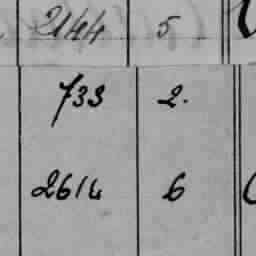 2144 5
733 2.
2614 6